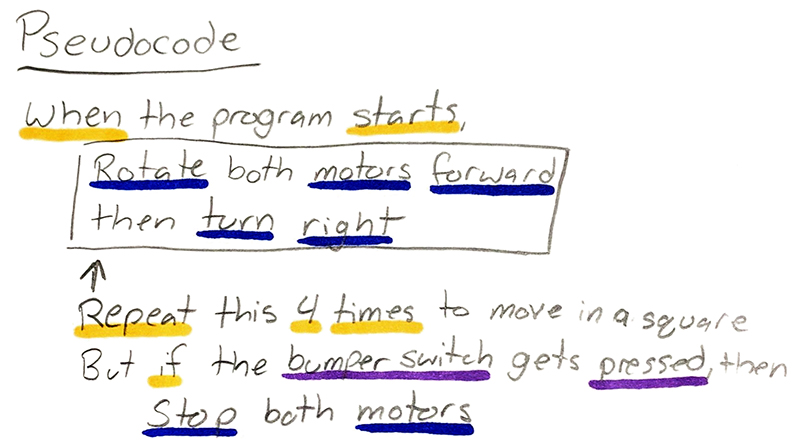 Pseudocode
When the program starts,
Rotate both motors forward
then turn right
Repeat this 4 times to move in a square
But if the bumper switch gets pressed, then
Stop both motors